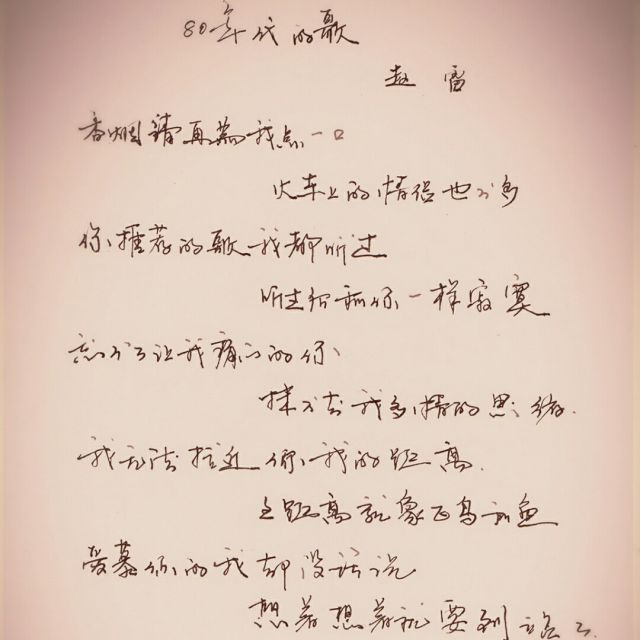 80年代的歌
赵雷
香烟請再為我点一口
火车上的情侣也不多
你推荐的歌我都听过
听起来和你一样寂寞
忘不了让我痛心的你
抹不去我多情的思绪
我无法拉近你我的距离
这距离就象飞鸟和鱼
爱慕你的我却没话说
想着想着就要到站了